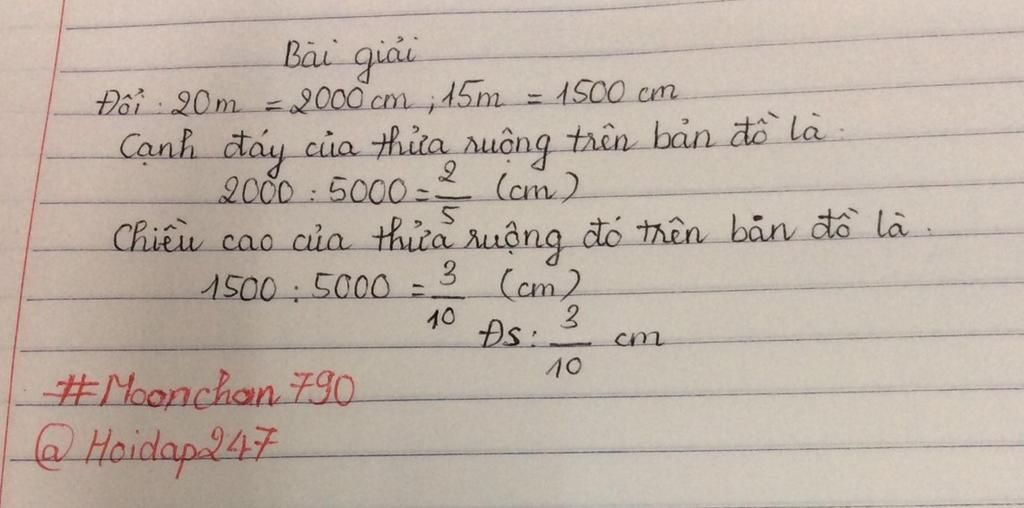 Bài giải
Đổi : 20m = 2000 cm ; 15m = 1500 cm
Cạnh đáy của thửa ruộng trên bản đồ là :
2000 : 5000 = 2/5 (cm)
Chiều cao của thửa ruộng đó trên bản đồ là :
1500 : 5000 = 3/10 (cm)
Đs : 3/10 cm
#Moonchan790
@Hoidap247